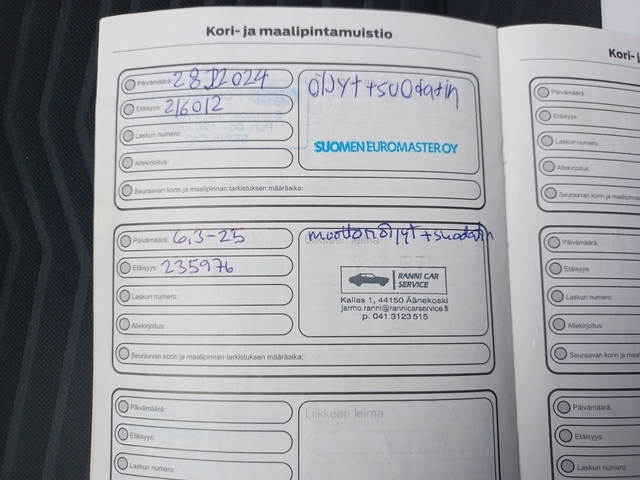 Kori- ja maalipintamuistio
Päivämäärä:
Etäisyys: 216012
Laskun numero:
Allekirjoitus:
Seuraavan korin ja maalipinnan tarkistuksen määräaika:
öljyt+suodatin
SUOMEN EUROMASTER OY
Päivämäärä: 6,3-25
Etäisyys: 235976
Laskun numero:
Allekirjoitus:
Seuraavan korin ja maalipinnan tarkistuksen määräaika:
Liikkeen leima
moottoriöljyt+suodatin
RANNI CAR
SERVICE
Kallas 1, 44150 Äänekoski
jarmo.ranni@rannicarservice.fi
p. 041 3123 515
Päivämäärä:
Etäisyys:
Laskun numero:
Liikkeen leima
Kori-
Päivämäärä:
Etäisyys:
Laskun numero:
Allekirjoitus:
Seuraavan korin ja
Päivämäärä:
Etäisyys:
Laskun numero:
Allekirjoitus:
Seuraavan korin ja
Päivämäärä:
Etäisyys:
Laskun numero: